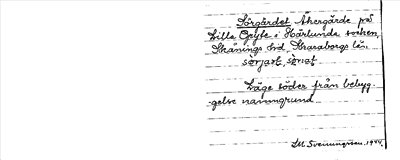 Sörgärdet Åkergärde på
Lilla Gejfe i Hvarlunda socken,
Skånings hd, Skaraborgs län.
sörjart, sörjat
Läge söder från bebyg-
gelse namngrund.
M. Svenungsson. 1944.